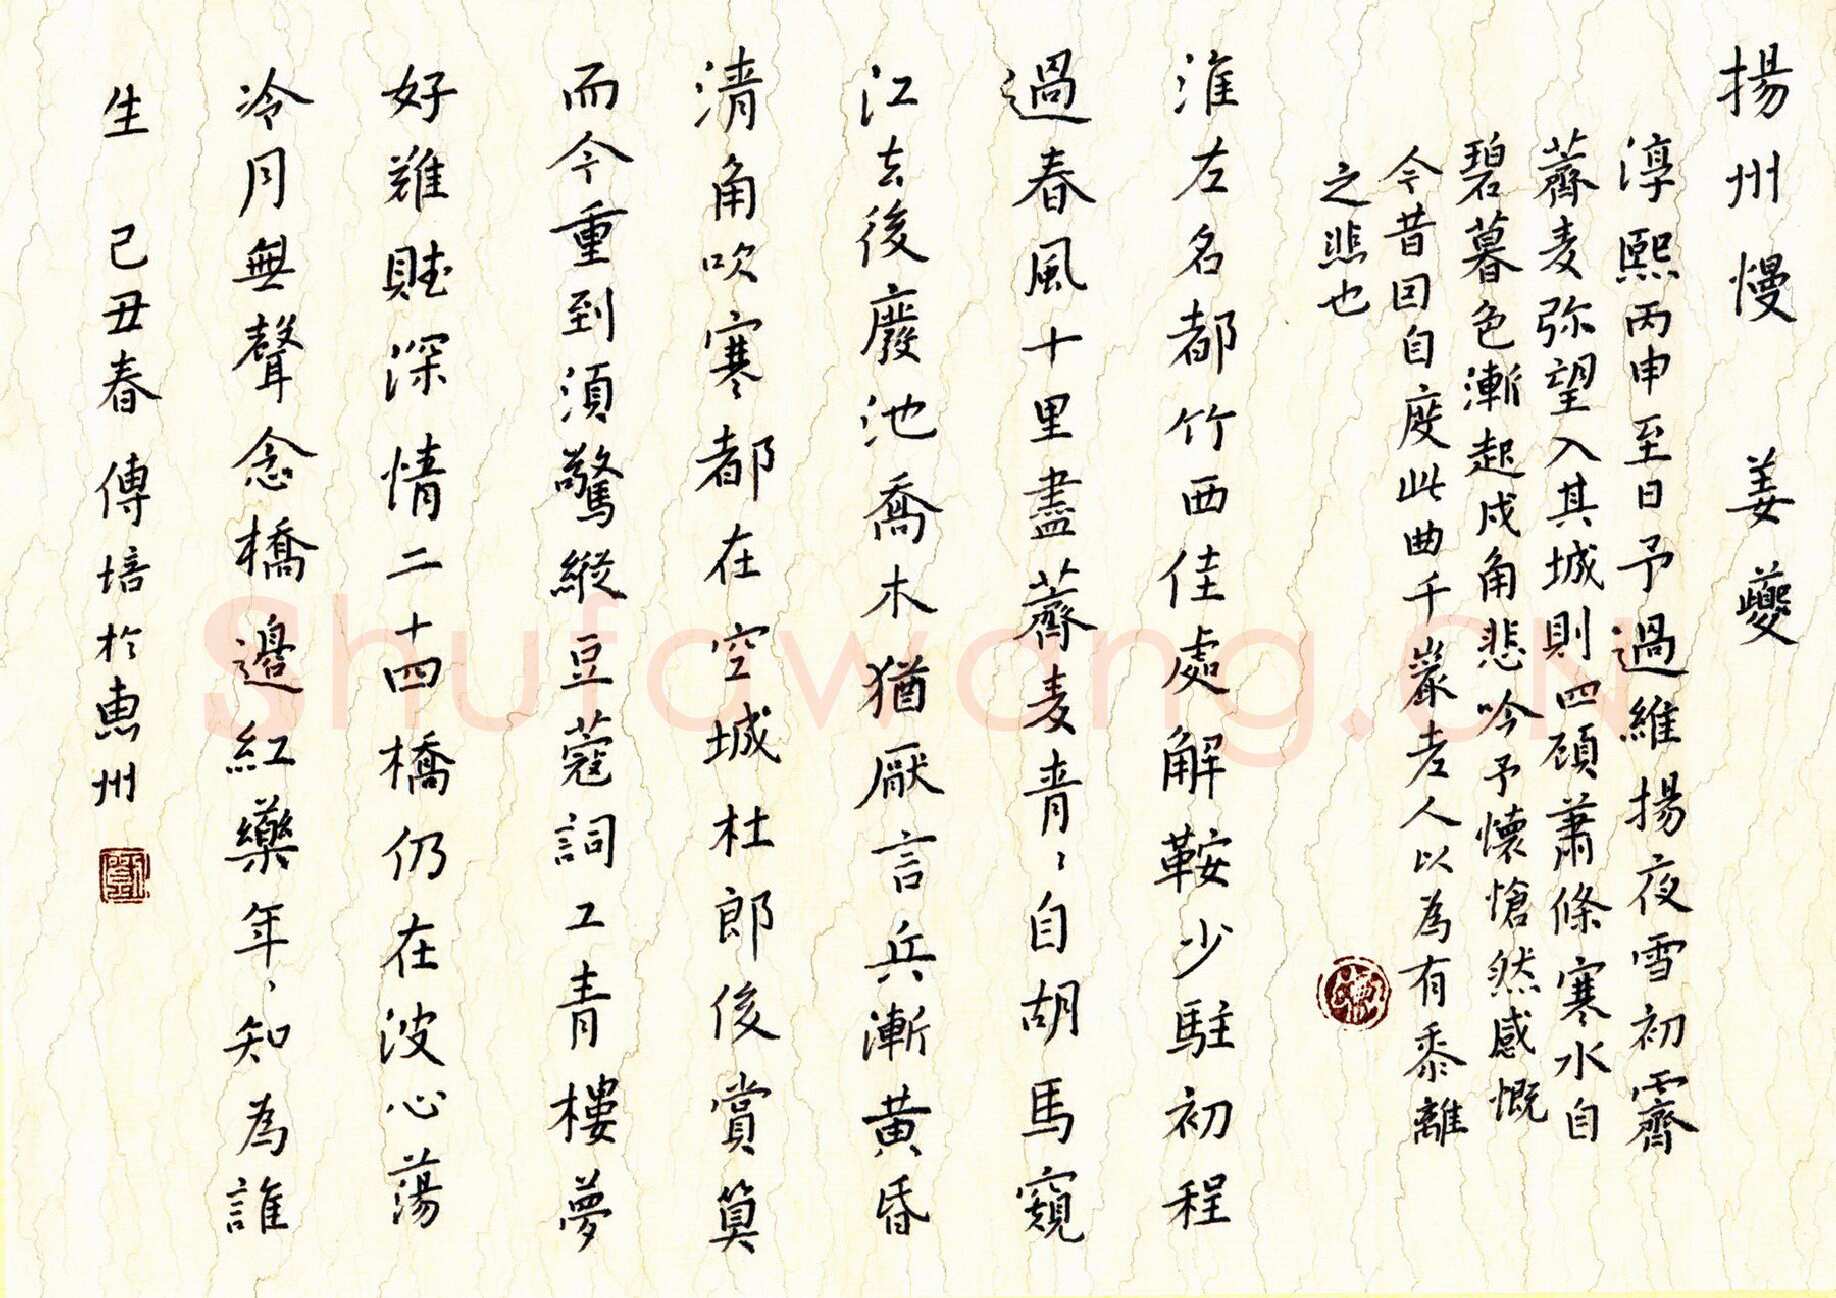 揚州慢　姜夔
淳熙丙申至日予過維揚夜雪初霽
薺麦弥望入其城則四顧蕭條寒水自
碧暮色漸起戍角悲吟予懷愴然感慨
今昔因自度此曲千巖老人以為有黍離
之悲也
淮左名都竹西佳處解鞍少駐初程
過春風十里盡薺麦青、自胡馬窺
江去後廢池喬木猶厭言兵漸黃昏
清角吹寒都在空城杜郎俊賞算
而今重到須驚縱豆蔻詞工青樓夢
好難賦深情二十四橋仍在波心蕩
冷月無聲念橋邊紅藥年、知為誰
生　己丑春傅培於惠州
Shufawang.CN